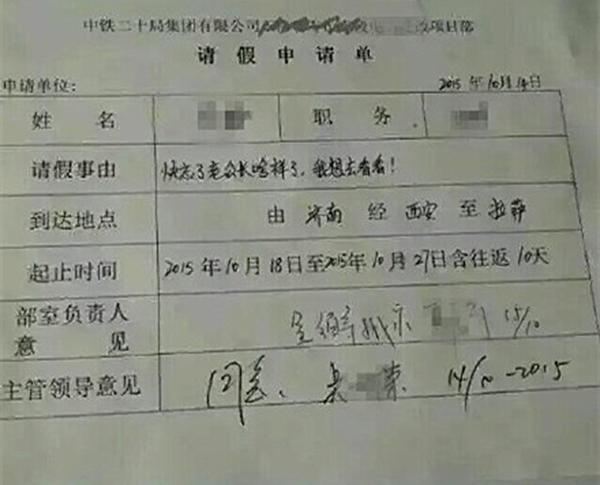 中铁二十局集团有限公司 改项目部
请假申请单
申请单位: 2015年10月14日
姓名 职务
请假事由 快忘了老公长啥样了，我想去看看!
到达地点 由济南经西安至拉萨
起止时间 2015年10月18日至2015年10月27日含往返10天
部室负责人 意见 呈领导批示 15/10
主管领导意见 同意、 14/10-2015